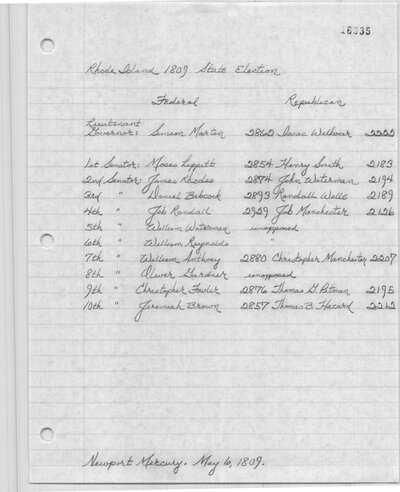 16035
Rhode Island 1809 State Election
Federal Republican
Lieutenant
Governor: Simeon Martin 2862 Isaac Wilbour 2222
1st Senator: Moses Lippitt 2854 Henry Smith 2183
2nd Senator: James Rhodes 2874 John Waterman 2194
3rd " Daniel Babcock 2893 Randall Wells 2189
4th " Job Randall 2929 Job Manchester 2126
5th " William Waterman unopposed
6th " William Reynolds "
7th " William Anthony 2880 Christopher Manchester 2207
8th " Oliver Gardner unopposed
9th " Christopher Fowler 2876 Thomas G. Pitman 2195
10th " Jeremiah Brown 2857 Thomas B. Hazard 2212
Newport Mercury. May 6, 1809.